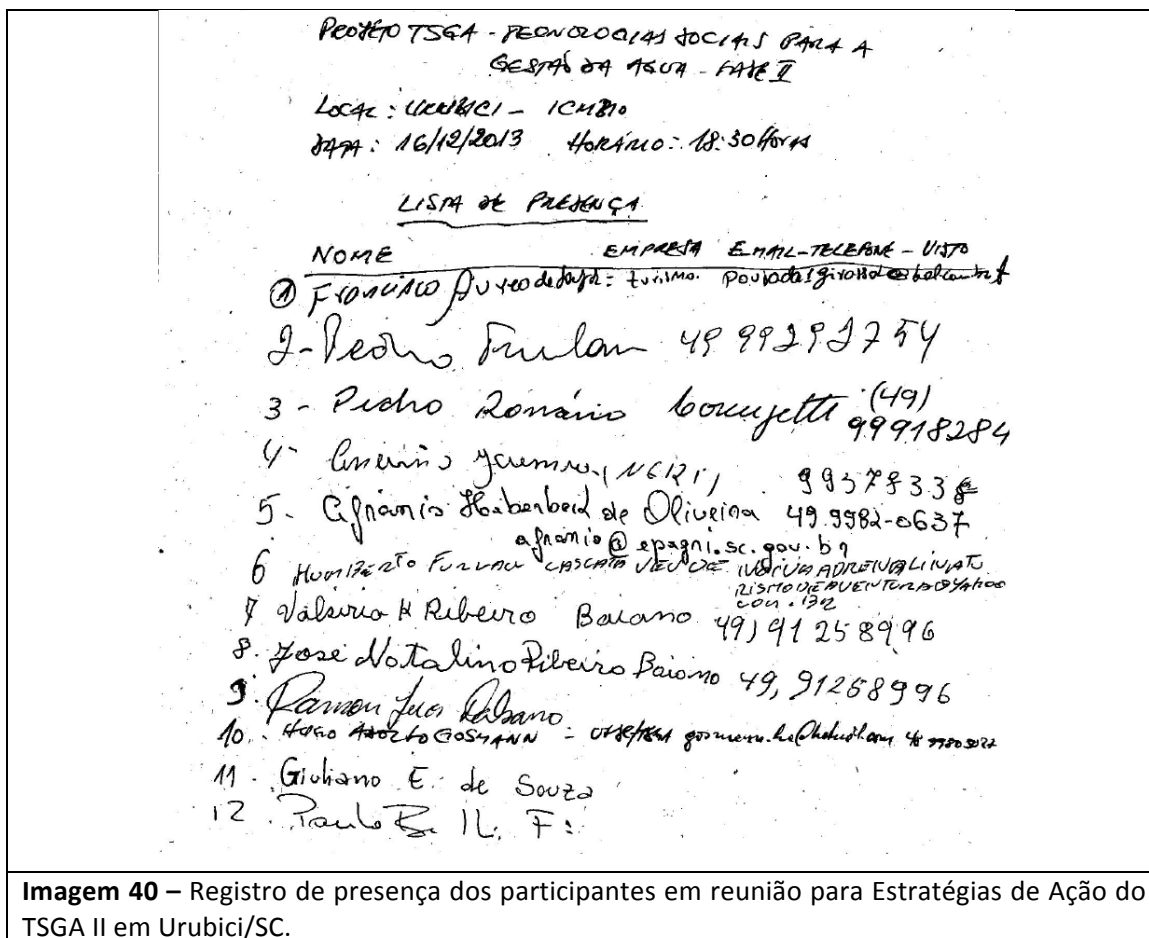 PROJETO TSGA - TECNOLOGIAS SOCIAIS PARA A
GESTÃO DA AGUA - FASE II
LOCAL: URUBICI - ICMBIO
DATA: 16/12/2013 HORÁRIO: 18:30 Horas
LISTA DE PRESENÇA
NOME EMPRESA EMAIL-TELEFONE - VISTO
① Francisco turismo.
2 - Pedro Furlan 49 99292754
3 - Pedro Romário (49)
99918284
4 -
5. Afranio de Oliveira 49.9982-0637
afranio@epagri.sc.gov.br
6 HUMBERTO FURLAN CASCATA VEU DE NOIVA ADRENALINATU
RISMODEAVENTURA@YAHOO
COM.BR
7 Valsirio H Ribeiro Baiano 49) 91258996
8. José Natalino Ribeiro Baiano 49, 91258996
9. Ramon
10. HUGO ADOLFO GOSMANN -
11. Giuliano E. de Souza
12. Paulo
Imagem 40 – Registro de presença dos participantes em reunião para Estratégias de Ação do
TSGA II em Urubici/SC.